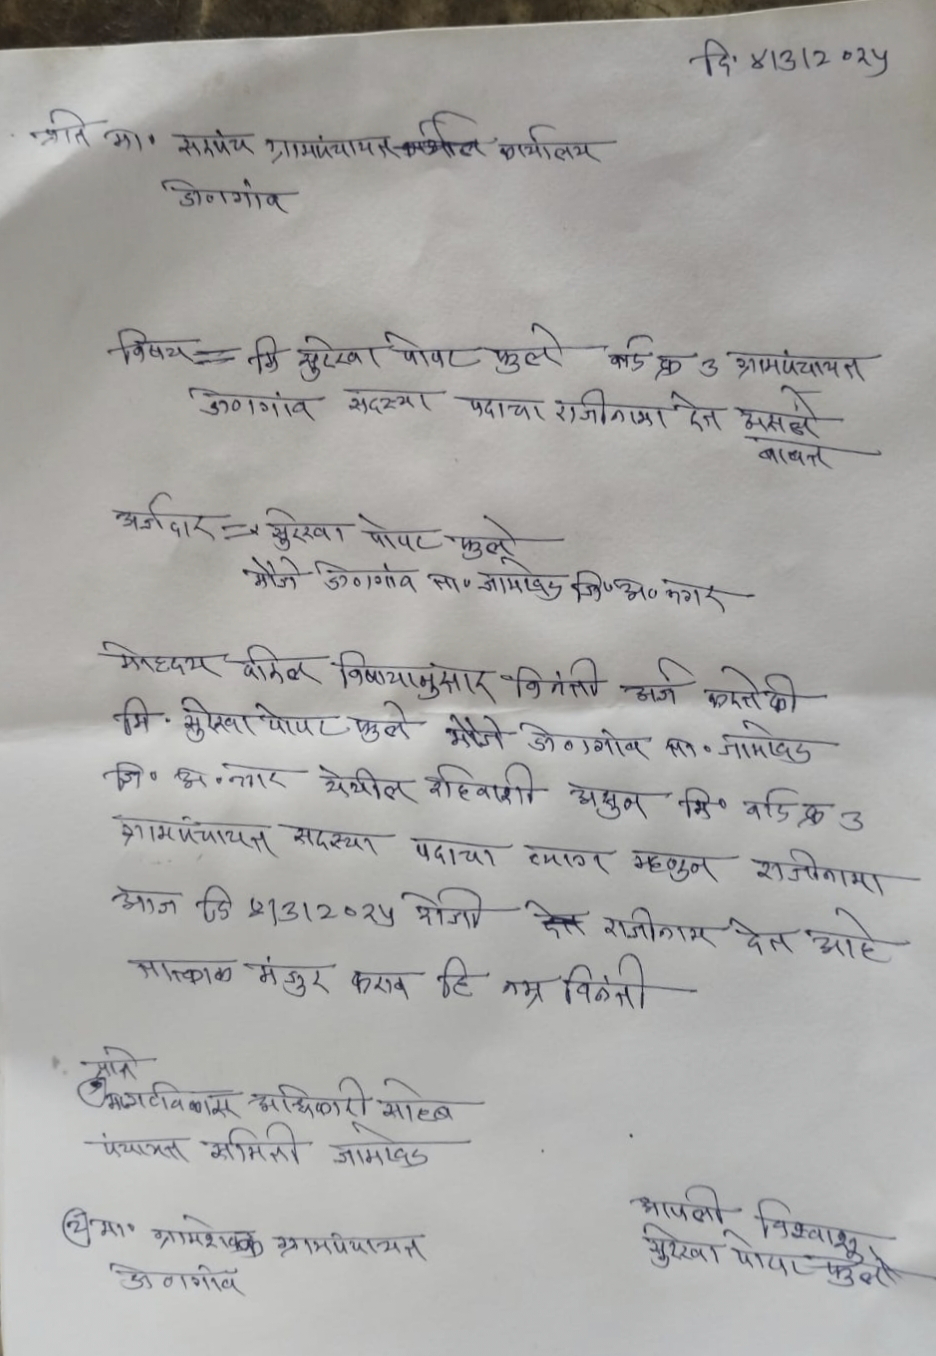 दि. ४/3/2०२५
प्रति मा. सरपंच ग्रामपंचायत कार्यालय
डोणगांव
विषय = मि सुरेखा पोपट फुले वार्ड क्र 3 ग्रामपंचायत
डोणगांव सदस्या पदाचा राजीनामा देत असले
बाबत
अर्जदार => सुरेखा पोपट फुले
मौजे डोणगांव ता. जामखेड जि.अ. नगर
मोहदय वरिल विषयानुसार विनंती अर्ज करते की
मि. सुरेखा पोपट फुले मौजे डोणगांव ता. जामखेड
जि. अ. नगर येथील रहिवाशी असुन मि. वार्ड क्र 3
ग्रामपंचायत सदस्या पदाचा त्याग म्हणुन राजीनामा
आज दि ४/3/2०२५ रोजी राजीनामा देत आहे
तात्काळ मंजुर करावा हि नम्र विनंती
प्रति
गटविकास अधिकारी साहेब
पंचायत समिती जामखेड
२) मा. ग्रामसेवक ग्रामपंचायत
डोणगांव
आपली विश्वासू
सुरेखा पोपट फुले